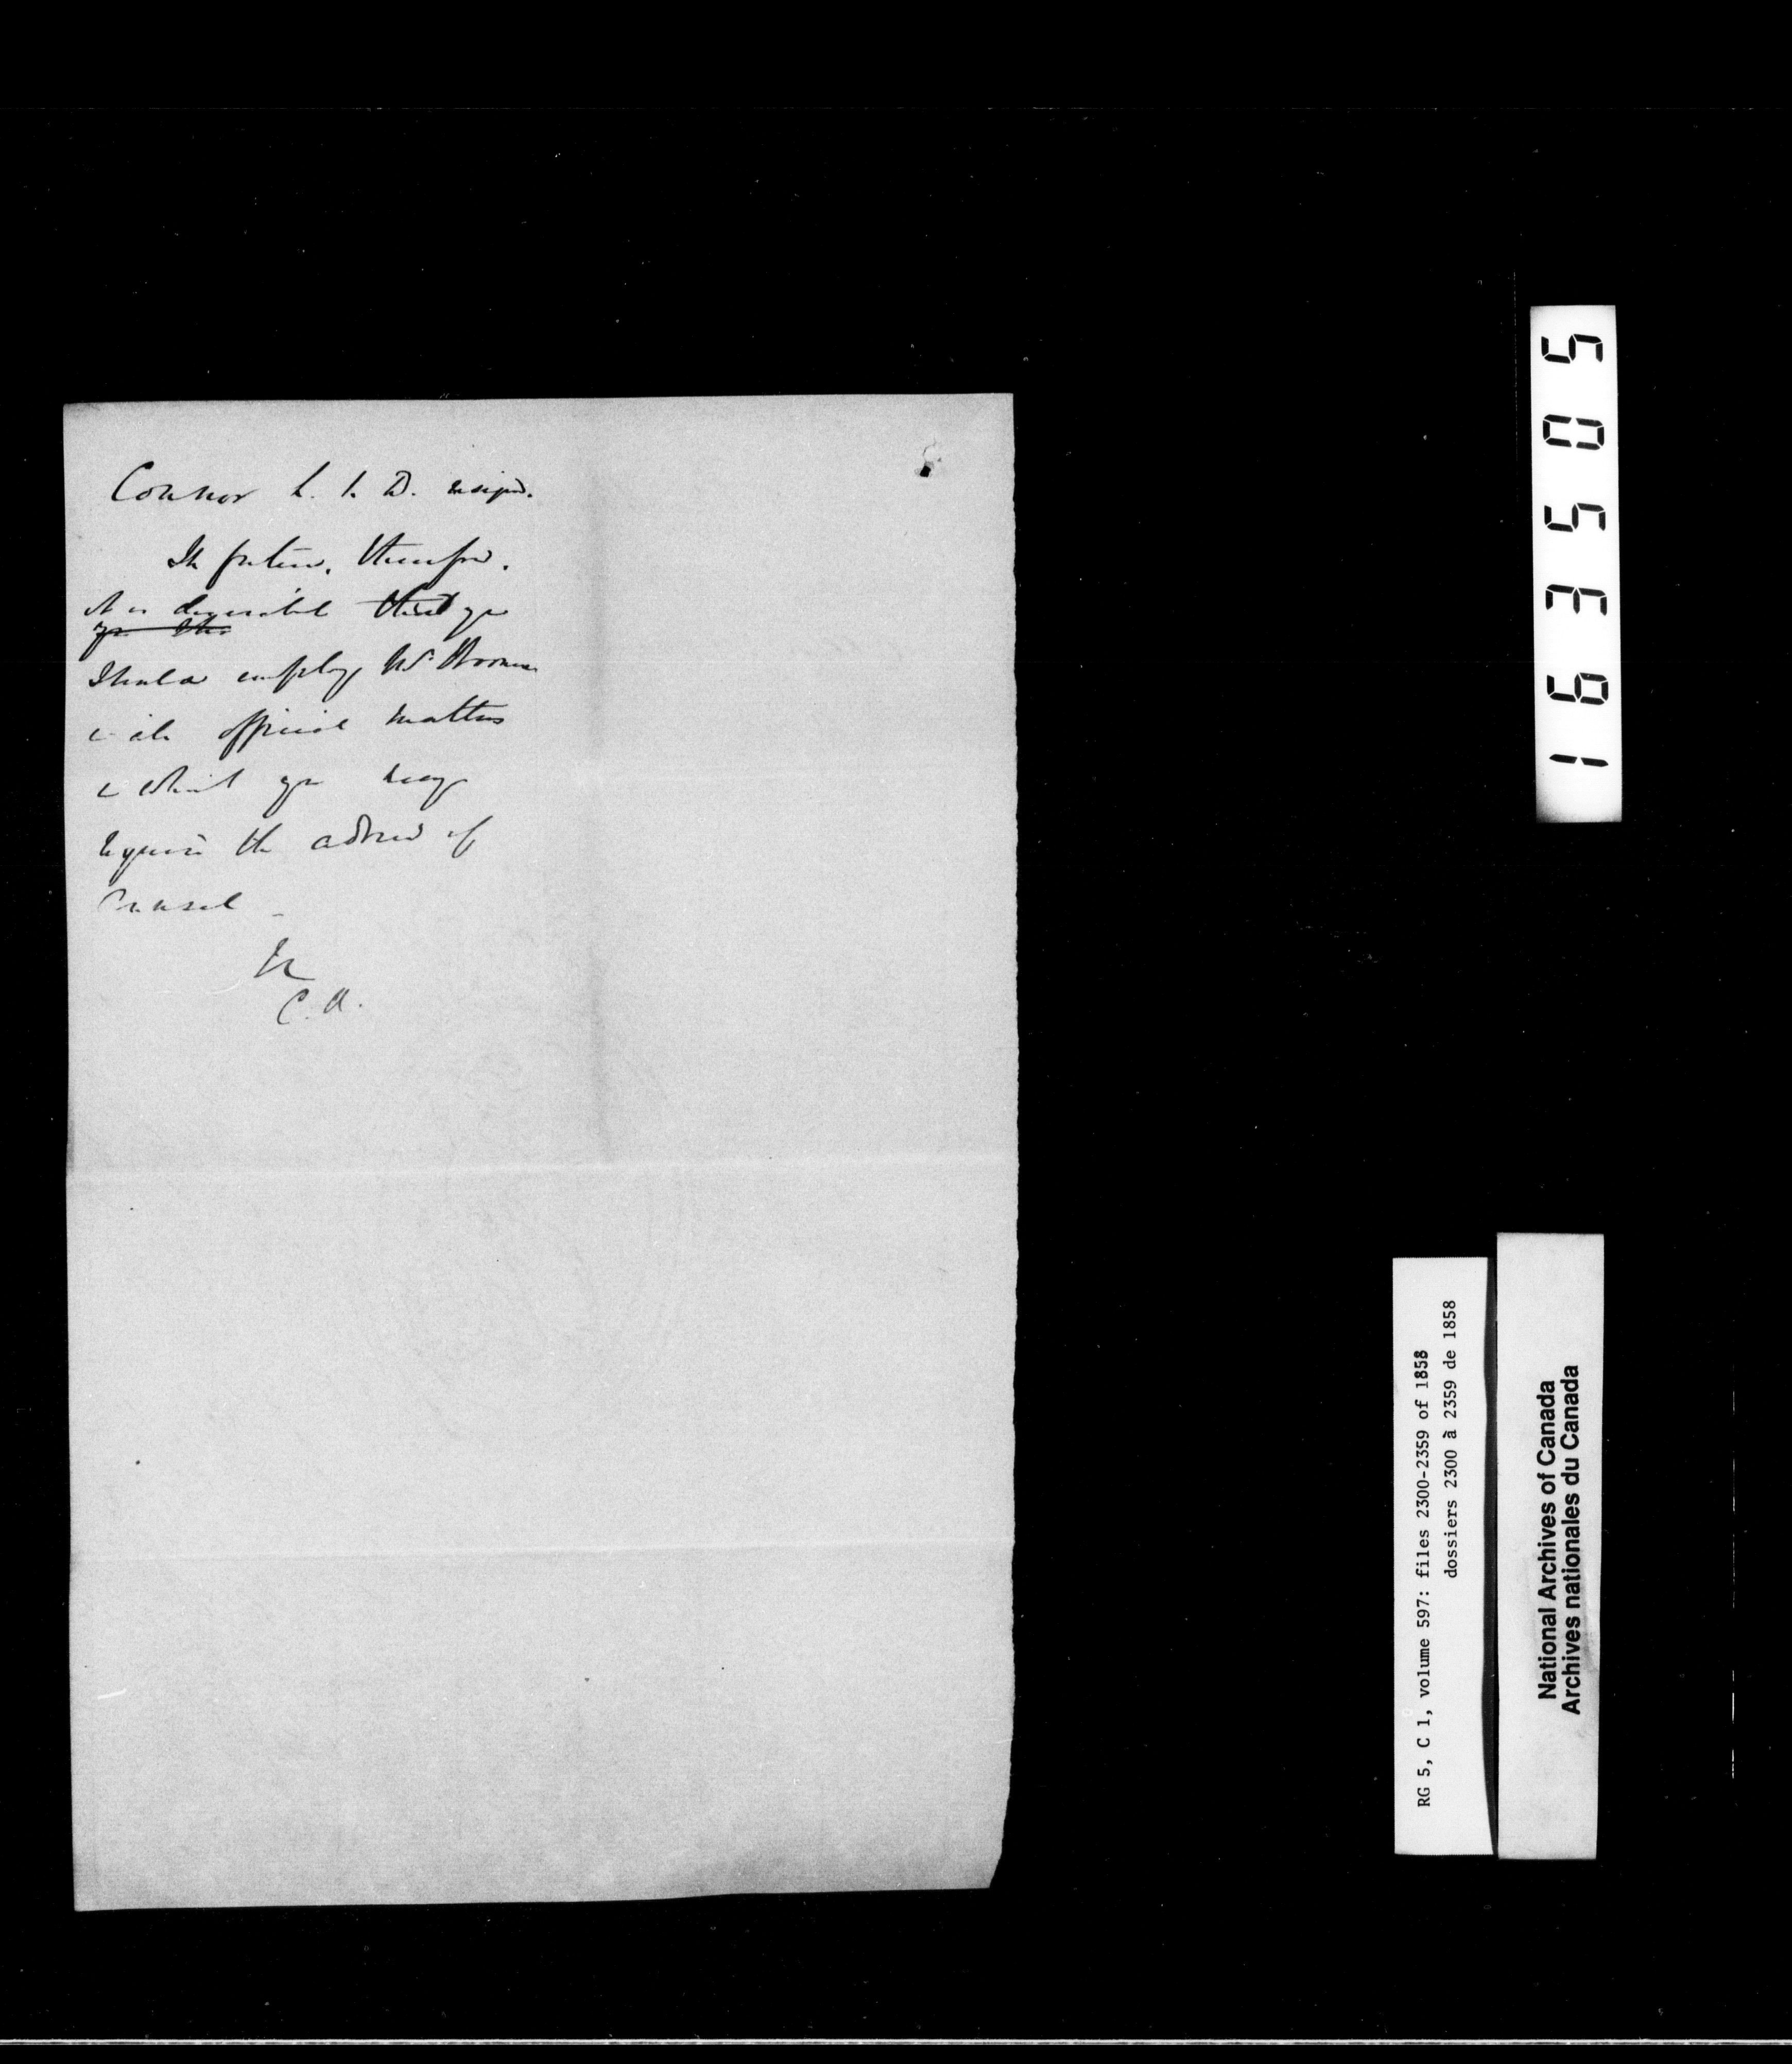 Connor L. L. D. resigned.
In future, therefore.
it is desirable that you
should employ Mr
in all official matters
in which you may
require the advice of
Counsel
C. A.
505391
RG 5, C 1, volume 597: files 2300-2359 of 1858
dossiers 2300 à 2359 de 1858
National Archives of Canada
Archives nationales du Canada